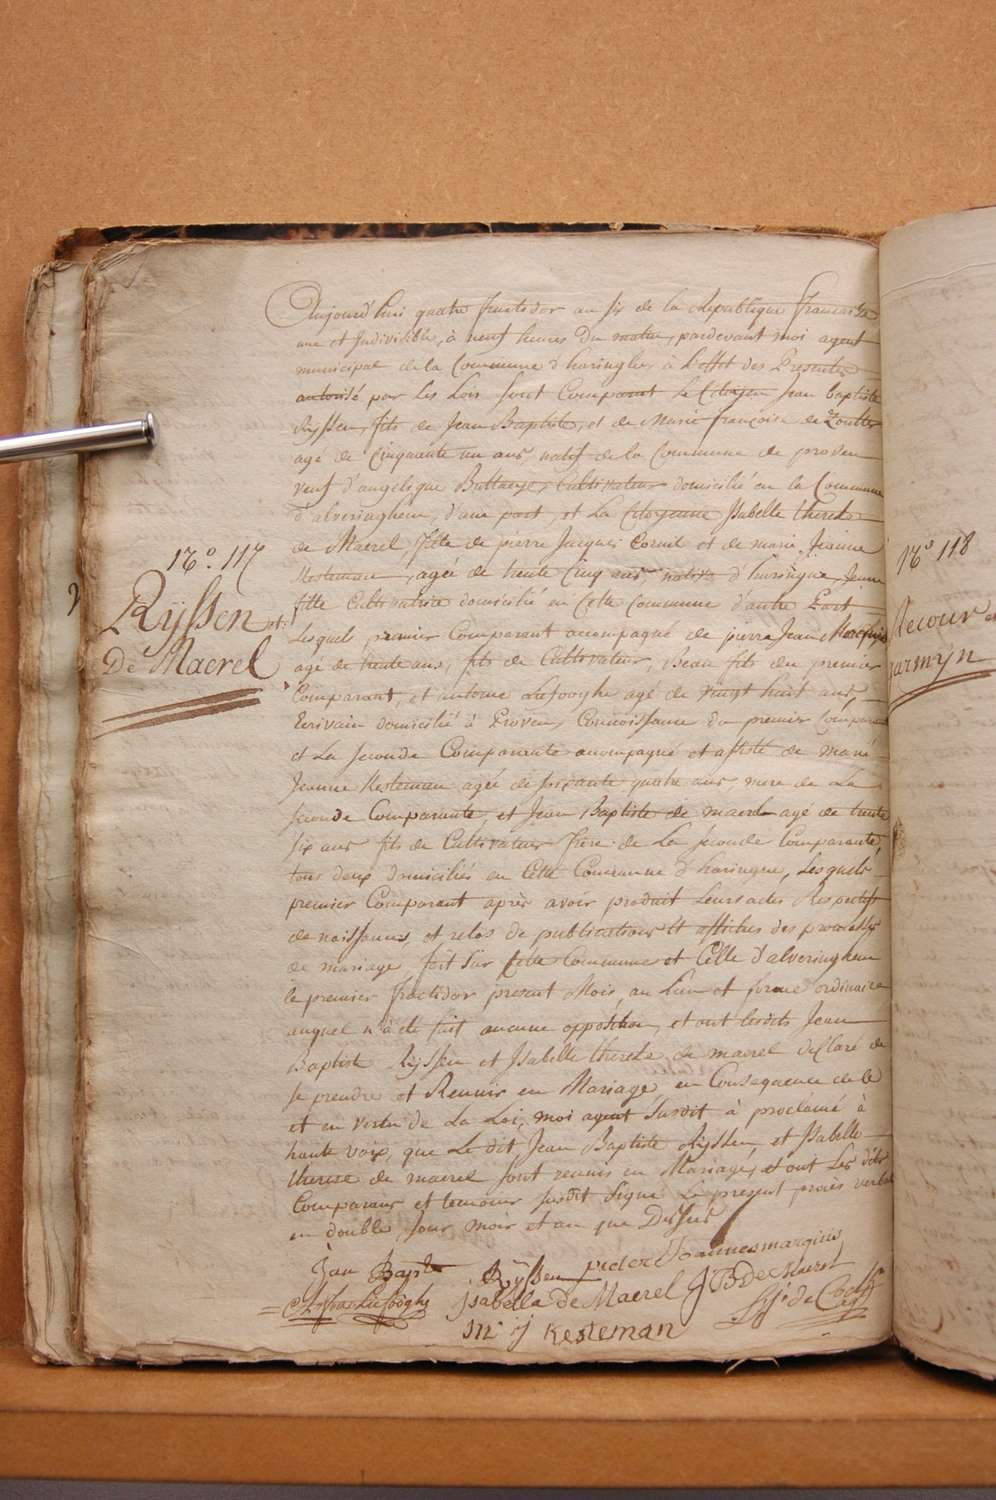 Aujourd'hui quatre fructidor an six de la République francaise
une et Indivisible, à neuf heures du matin, pardevant moi agent
municipal de la Commune d'haringhe, à L'effet des Presentes
autorisé par les Lois sont Comparant le Citoyen Jean baptiste
Ryssen, fils de Jean Baptiste, et de Marie françoise de Zoutter
agé de Cinquante un ans, natif de la Commune de proven
veuf d'angelique Cultivateur domicilié en la Commune
d'alveringhem, d'une part, et La Citoyenne Isabelle therese
de Maerel fille de pierre Jacques Corneil et de marie Jeanne
Kesteman, agée de trente Cinq ans, native d'haringue, Jeune
fille Cultivatrice domicilié en Cette Commune d'autre Part
Lesquels, premier Comparant acompagné de pierre Jean
agé de trente ans, fils de Cultivateur, Beau fils du premier
Comparant, et antoine Lafooghe agé de vingt huit ans
Ecrivain domicilié à Proven, Connoissance du premier Comparant
et La seconde Comparante acompagné et assisté de marie
Jeanne Kesteman agée de soixante quatre ans, mere de La
seconde Comparante, et Jean Baptiste de maerel agé de trente
six ans fils de Cultivateur frere de La seconde Comparante,
tous deux domiciliés en Cette Commune d'haringue, Lesquels
premier Comparant après avoir produit Leurs actes Respectifs
de naissances, et de publications et affiches des promesses
de mariage, fait sur Cette Commune et Celle d'alveringhem
le premier fructidor present Mois, au Lieu et forme ordinaire
auquel n'à été fait aucune opposition, et ont lesdits Jean
Baptiste Ryssen et Isabelle therese de maerel declaré de
se prendre et Reunir en Mariage, en Consequence de le
et en vertu de La Loi, moi agent susdit à proclamé à
haute voix, que Le dit Jean Baptiste Ryssen, et Isabelle
therese de maerel sont reunis en Mariage, et ont Les dits
Comparans et temoins susdit signé Le present procès verbal
en double Jour mois et an que Dessus
N.º 117
Ryssen et
De Maerel
Jan Bapte Ryssen pieter Joannes marquis
Lafooghe Isabella De Maerel J B De Maerel
m j Kesteman
N.º 118